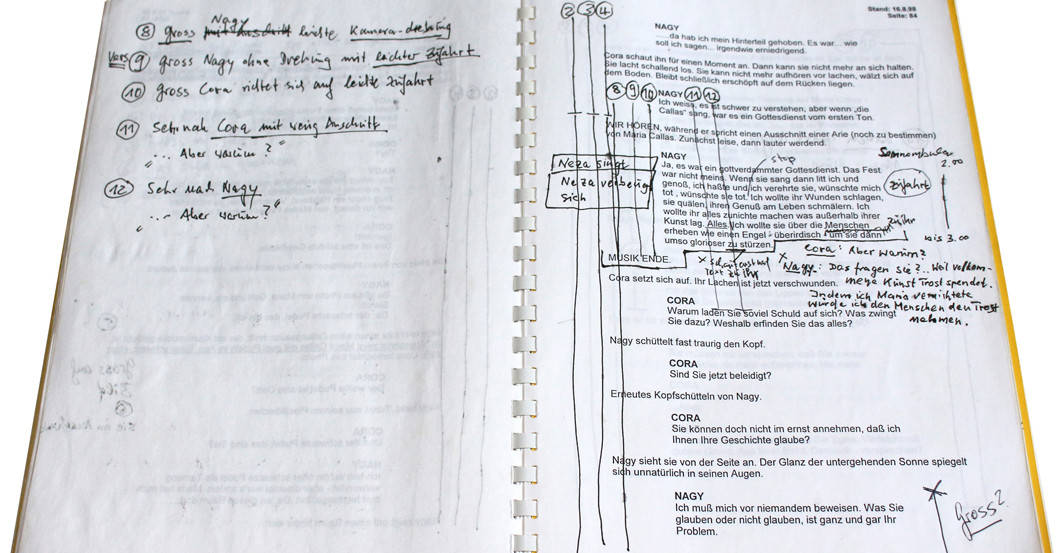 ⑧ gross Nagy mit Ausschnitt leichte Kamera-drehung
Vors ⑨ gross Nagy ohne Drehung mit leichter Zufahrt
⑩ gross Cora richtet sich auf leichte Zufahrt
⑪ Sehr nah Cora mit wenig Anschnitt
"... Aber warum?"
⑫ Sehr nah Nagy
"... Aber warum?"
② ③ ④
Stand: 16.8.98
Seite: 84
NAGY
.....da hab ich mein Hinterteil gehoben. Es war... wie
soll ich sagen... irgendwie erniedrigend.
Cora schaut ihn für einen Moment an. Dann kann sie nicht mehr an sich halten.
Sie lacht schallend los. Sie kann nicht mehr aufhören vor lachen, wälzt sich auf
dem Boden. Bleibt schließlich erschöpft auf dem Rücken liegen.
⑧ ⑨ ⑩ NAGY ⑪ ⑫
Ich weiss, es ist schwer zu verstehen, aber wenn „die
Callas" sang, war es ein Gottesdienst vom ersten Ton.
WIR HÖREN, während er spricht einen Ausschnitt einer Arie (noch zu bestimmen)
von Maria Callas. Zunächst leise, dann lauter werdend.
NAGY
stop
Somnambula
2.00
Ja, es war ein gottverdammter Gottesdienst. Das Fest
war nicht meins. Wenn sie sang dann litt ich und
genoß, ich haßte und ich verehrte sie, wünschte mich
tot , wünschte sie tot. Ich wollte ihr Wunden schlagen,
sie quälen, ihren Genuß am Leben schmälern. Ich
wollte ihr alles zunichte machen was außerhalb ihrer
Kunst lag. Alles. Ich wollte sie über die Menschen
erheben wie einen Engel - überirdisch - um sie dann
umso glorioser zu stürzen.
Zufahrt
zu ihr
bis 3.00
Neza singt
Neza verbeugt
sich
MUSIK ENDE.
Cora: Aber warum?
Nagy: Das fragen Sie?.. Weil vollkom-
mene Kunst Trost spendet.
Indem ich Maria vernichtete
wurde ich den Menschen den Trost
nehmen.
Cora setzt sich auf. Ihr Lachen ist jetzt verschwunden.
CORA
Warum laden Sie soviel Schuld auf sich? Was zwingt
Sie dazu? Weshalb erfinden Sie das alles?
Nagy schüttelt fast traurig den Kopf.
CORA
Sind Sie jetzt beleidigt?
Erneutes Kopfschütteln von Nagy.
CORA
Sie können doch nicht im ernst annehmen, daß ich
Ihnen Ihre Geschichte glaube?
Nagy sieht sie von der Seite an. Der Glanz der untergehenden Sonne spiegelt
sich unnatürlich in seinen Augen.
NAGY
Ich muß mich vor niemandem beweisen. Was Sie
glauben oder nicht glauben, ist ganz und gar Ihr
Problem.
Gross?